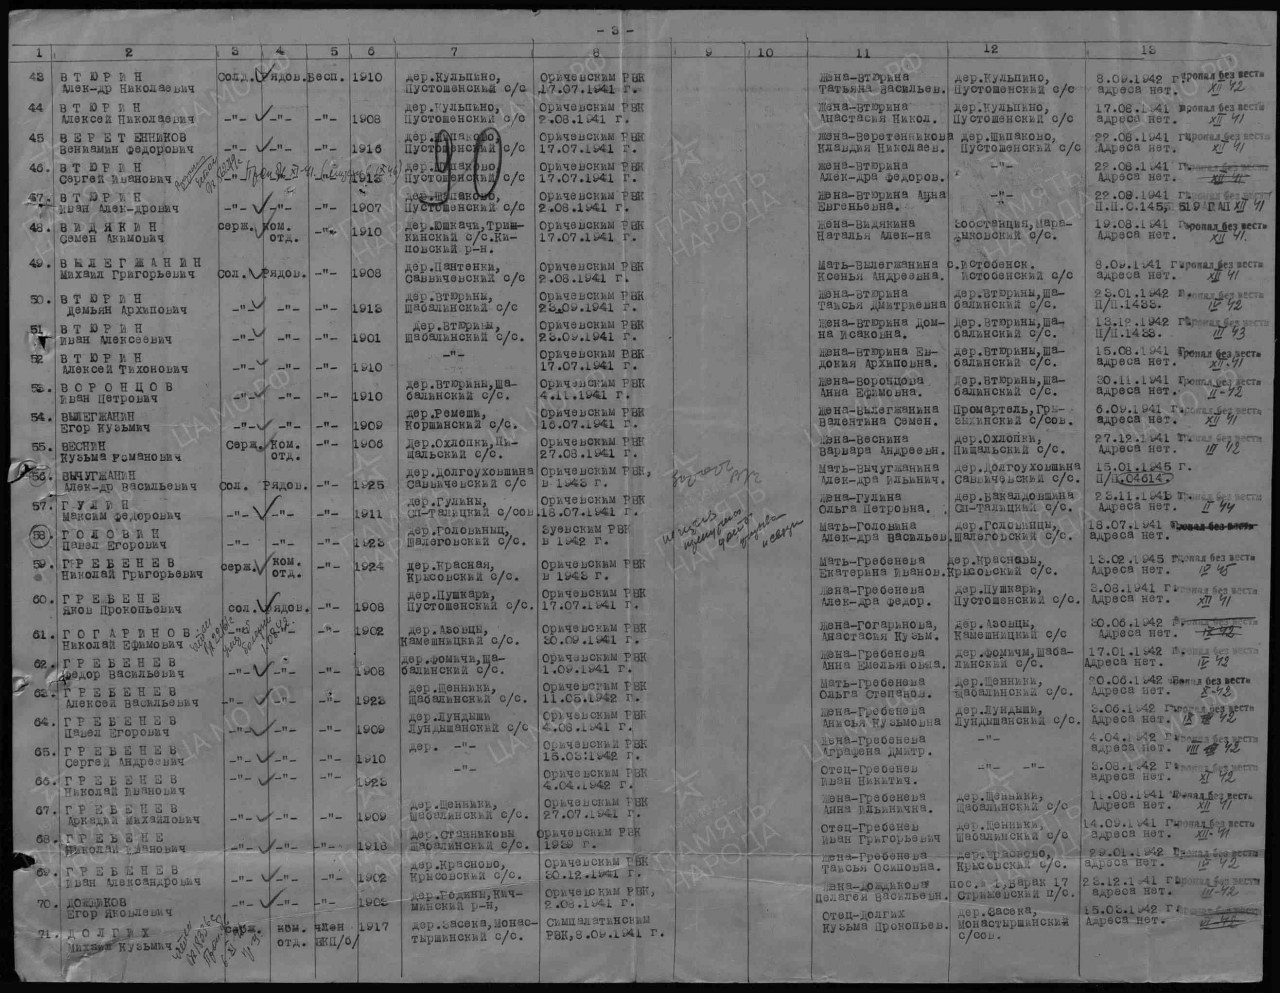 - 3 -
1 2 3 4 5 6 7 8 9 10 11 12 13
43 ВТЮРИН Солд. Рядов. Бесп. 1910 дер.Кульпино, Оричевским РВК Жена-Втюрина дер.Кульпино, 8.09.1942 г. Пропал без вести
Алек-др Николаевич Пустошенский с/с 17.07.1941 г. Татьяна Васильев. Пустошенский с/с адреса нет. XII 42
44 ВТЮРИН дер.Кульпино, Оричевским РВК Жена-Втюрина дер.Кульпино, 17.08.1941
Алексей Николаевич -"- -"- 1908 Пустошенский с/с 2.08.1941 г. Анастасия Никол. Пустошенский с/с адреса нет. XII 41
45 ВЕРЕТЕННИКОВ дер.Шипаково, Оричевским РВК Жена-Веретенникова дер.Шипаково, 22.08.1941 Пропал без вести
Вениамин Федорович -"- -"- 1916 Пустошенский с/с 17.07.1941 г. Клавдия Николаев. Пустошенский с/с Адреса нет. XII 41
46. ВТЮРИН дер.Шипаково, Оричевским РВК Жена-Втюрина -"- 22.08.1941
Сергей Иванович -"- 1913 Пустошенский с/с 17.07.1941 г. Алек-дра Федоров. Адреса нет. XII 41
47. ВТЮРИН дер.Шипаково, Оричевским РВК Жена-Втюрина Анна 22.09.1941
Иван Алек-дрович -"- -"- 1907 Пустошенский с/с 2.08.1941 г. Евгеньевна. П.П.С.145, 519 ГАП XII 41
48. ВИДЯКИН серж. ком. дер.Юшкачи,Триш- Оричевским РВК Жена-Видякина 19.08.1941 Пропал без вести
Семен Акимович отд. -"- 1910 кинский с/с.Ки- 17.07.1941 г. Наталья Алек-на Адреса нет. XII 41.
повский р-н.
49. ВЫЛЕГЖАНИН дер.Пантенки, Оричевским РВК Мать-Вылегжанина с.Истобенск. 8.09.1941 Пропал без вести
Михаил Григорьевич Сол. Рядов. -"- 1908 Саввичевский с/с 2.08.1941 г. Ксенья Андреевна. Истобенский с/с Адреса нет. XII 41
50. ВТЮРИН дер.Втюрины, Оричевским РВК Жена-Втюрина дер.Втюрины,Ша- 23.01.1942 г. Пропал без вести
Демьян Архипович -"- -"- -"- 1913 Шабалинский с/с. 23.09.1941 г. Таисья Дмитриевна балинский с/с. П/П.1433. IV 42
51 ВТЮРИН дер.Втюрины, Оричевским РВК Жена-Втюрина Дом- дер.Втюрины,Ша- 13.12.1942 Пропал без вести
Иван Алексеевич -"- -"- -"- 1901 Шабалинский с/с. 23.09.1941 г. на Исаковна. балинский с/с. П/П.1433. III 43
52 ВТЮРИН -"- Оричевским РВК Жена-Втюрина Ев- дер.Втюрины,Ша- 15.08.1941 Пропал без вести
Алексей Тихонович -"- -"- -"- 1910 17.07.1941 г. докия Архиповна. балинский с/с. адреса нет. XII-41
53. ВОРОНЦОВ дер.Втюрины,Ша- Оричевским РВК Жена-Воронцова дер.Втюрины,Ша- 30.11.1941 Пропал без вести
Иван Петрович -"- -"- -"- 1910 балинский с/с. 4.11.1941 г. Анна Ефимовна. балинский с/с. адреса нет. II-42
54. ВЫЛЕГЖАНИН дер.Ремеши, Оричевским РВК Жена-Вылегжанина Промартель, 6.09.1941 г. Пропал без вести
Егор Кузьмич -"- -"- -"- 1909 Коршинский с/с. 16.07.1941 г. Валентина Семен. с/сов. адреса нет. XII 41
55. ВЕСНИН Серж. Ком. -"- 1906 дер.Охлопки,Пи- Оричевским РВК Жена-Веснина дер.Охлопки, 27.12.1941 Пропал без вести
Кузьма Романович отд. щальский с/с. 27.08.1941 г. Варвара Андреевн. Пищальский с/с. Адреса нет. III 42
56. ВЫЧУГЖАНИН дер.Долгоуховщина Оричевским РВК, Мать-Вычугжанина дер.Долгоуховщина 15.01.1945 г.
Алек-др Васильевич сол. Рядов. -"- 1925 Саввичевский с/с в 1943 г. Алек-дра Ильинич. Саввичевский с/с. П/П.04614.
57. ГУЛИН дер.Гулины, Оричевским РВК Жена-Гулина дер.Бакалдовщина 23.11.1941 Пропал без вести
Максим Федорович -"- -"- -"- 1911 Сп-Талицкий с/сов. 18.07.1941 г. Ольга Петровна. Сп-Талицкий с/с. адреса нет. II 44
58. ГОЛОВИН дер.Головинцы, Зуевским РВК Мать-Головина дер.Головинцы, 18.07.1941 Пропал без вести
Павел Егорович -"- -"- -"- 1923 Шалеговский с/с. в 1942 г. Алек-дра Васильев. Шалеговский с/с. адреса нет.
59. ГРЕБЕНЕВ серж. ком. -"- 1924 дер.Красная, Оричевским РВК Мать-Гребенева 13.02.1945 Пропал без вести
Николай Григорьевич отд. Крысовский с/с. в 1943 г. Екатерина Иванов. Крысовский с/с. Адреса нет. IV 45
60. ГРЕБЕНЕ дер.Пушкари, Оричевским РВК Жена-Гребенева дер.Пушкари, 3.08.1941 г. Пропал без вести
Яков Прокопьевич сол. Рядов. -"- 1908 Пустошенский с/с. 17.07.1941 г. Алек-дра Федор. Пустошенский с/с. Адреса нет. XII 41
61. ГОГАРИНОВ -"- 1902 дер.Азовцы, Оричевским РВК Жена-Гогаринова, дер.Азовцы, 30.06.1942
Николай Ефимович Камешницкий с/с. 30.09.1941 г. Анастасия Кузьм. Камешницкий с/с Адреса нет.
62. ГРЕБЕНЕВ дер.Фомичи,Ша- Оричевским РВК Жена-Гребенева дер.Фомичи,Шаба- 17.01.1942 Пропал без вести
Федор Васильевич -"- -"- -"- 1908 балинский с/с. 1.09.1941 г. Анна Емельяновна. линский с/с. Адреса нет. IV 42
63. ГРЕБЕНЕВ дер.Щенники, Оричевским РВК Мать-Гребенева дер.Щенники, 20.06.1942 Пропал без вести
Алексей Васильевич -"- -"- 1923 Шабалинский с/с. 11.05.1942 г. Ольга Степанов. Шабалинский с/с. Адреса нет. X-42
64. ГРЕБЕНЕВ дер.Лундыши Оричевским РВК Жена-Гребенева дер.Лундыши, 3.06.1942 Пропал без вести
Павел Егорович -"- -"- -"- 1909 Лундышанский с/с .08.1941 г. Анисья Кузьмовна Лундышанский с/с. Адреса нет. 42
65. ГРЕБЕНЕВ дер. -"- Оричевский РВК Жена-Гребенева -"- 4.04.1942 г. Пропал без вести
Сергей Андреевич -"- -"- -"- 1910 15.03.1942 г. Аграфена Дмитр. адреса нет. VIII 42
66. ГРЕБЕНЕВ -"- -"- -"- 1923 -"- Оричевским РВК Отец-Гребенев -"- -"- 3.08.1942 г. Пропал без вести
Николай Иванович 4.04.1942 г. Иван Никитич. адреса нет. XI 42
67. ГРЕБЕНЕВ дер.Щенники, Оричевским РВК Жена-Гребенева дер.Щенники, 11.08.1941 Пропал без вести
Аркадий Михайлович -"- -"- -"- 1909 Шабалинский с/с. 27.07.1941 г. Анна Ильинична. Шабалинский с/с Адреса нет. XII 41
68. ГРЕБЕНЕ Оричевским РВК Отец-Гребенев дер.Щенники, 14.09.1941 Пропал без вести
Николай Иванович -"- -"- -"- 1918 Шабалинский с/с. 1939 г. Иван Григорьевич Шабалинский с/с адреса нет. XII-41
69. ГРЕБЕНЕВ дер.Красново, Оричевским РВК Жена-Гребенева дер.Красново, 29.01.1942 Пропал без вести
Иван Александрович -"- -"- -"- 1902 Крысовский с/с. 30.12.1941 г. Таисья Осиповна. Крысовский с/с. адреса нет. IV 42
70. ДОЖДИКОВ Оричевским РВК, Жена-Дождикова пос. 1,Барак 17 23.12.1941 Пропал без вести
Егор Яковлевич -"- -"- -"- 1903 р-н, 2.08.1941 г. Пелагея Васильевн. Стрижевский п/с. Адреса нет. III-42
71. ДОЛГИХ серж. ком. член 1917 дер.Засека,Монас- Семпалатинским Отец-Долгих дер.Засека, 15.03.1942
Михаил Кузьмич отд. ВКП/б/ тыршинский с/с. РВК,8.09.1941 г. Кузьма Прокопьев. Монастыршинский Адреса нет.
с/сов.
ЦА МО.РФ
ПАМЯТЬ НАРОДА